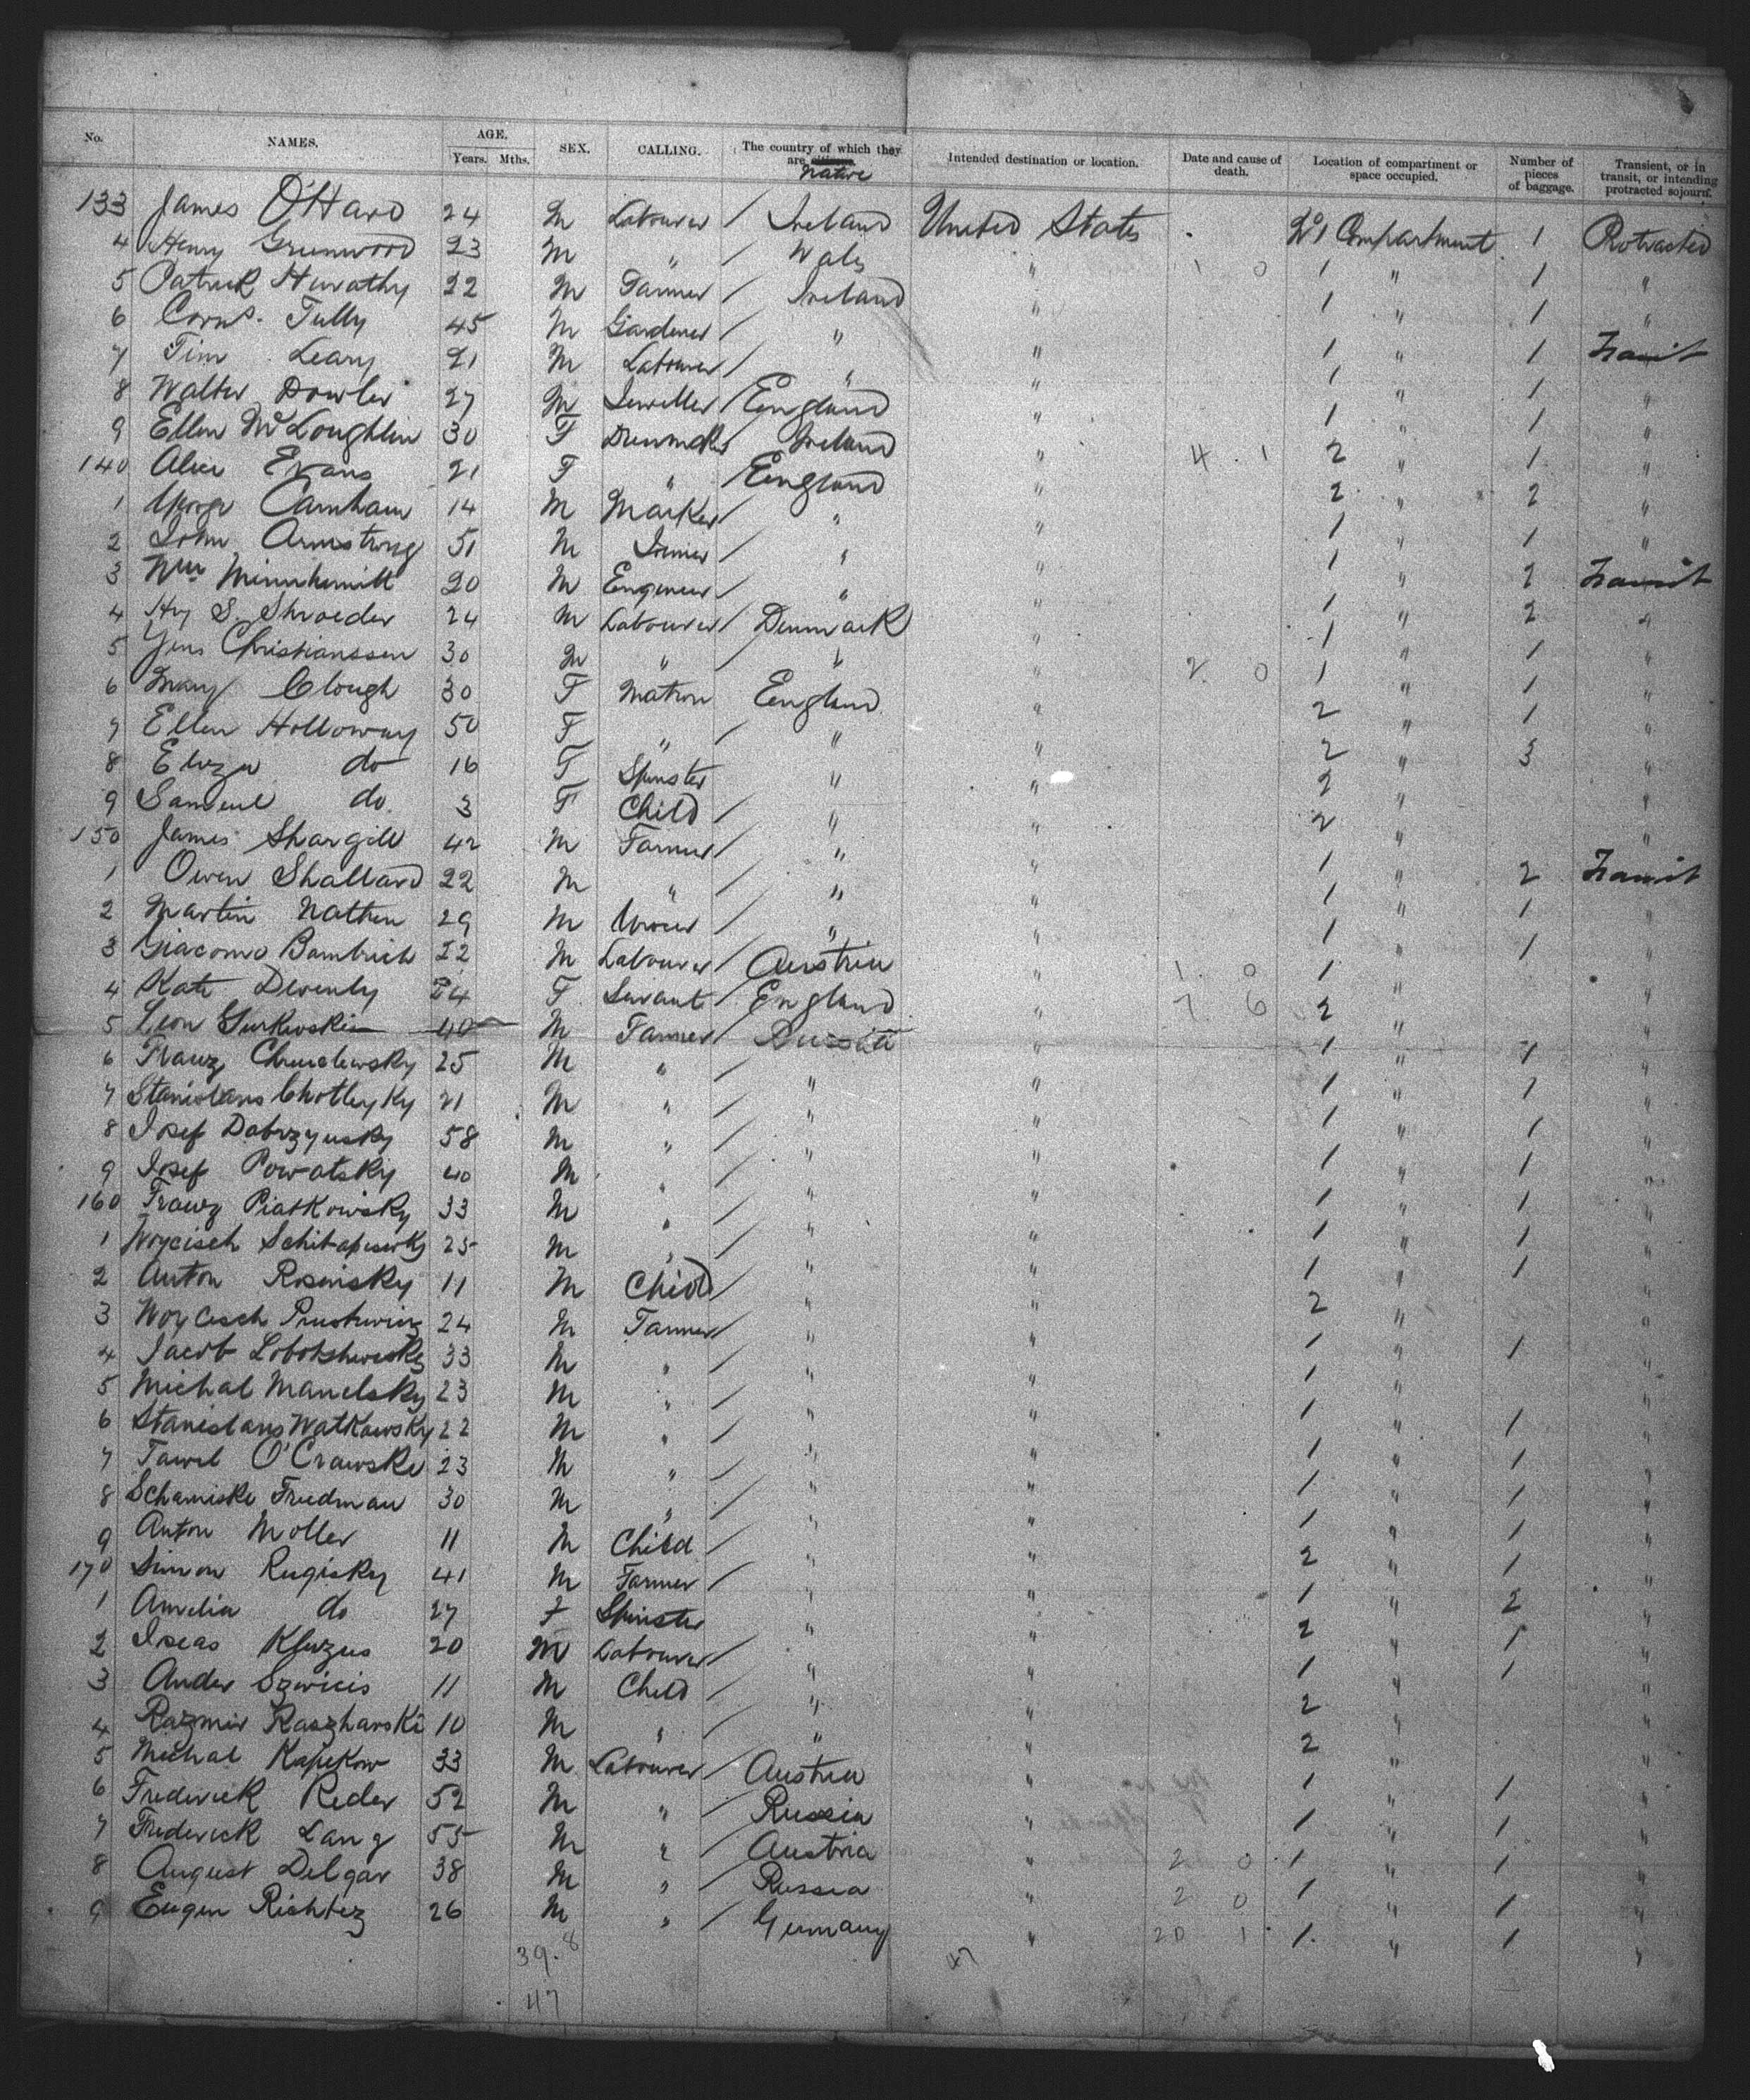 No. NAMES. AGE. Years. Mths. SEX. CALLING. The country of which they are citizens. Native Intended destination or location. Date and cause of death. Location of compartment or space occupied. Number of pieces of baggage. Transient, or in transit, or intending protracted sojourn.
133 James O'Hard 24 M Labourer / Ireland United States No 1 Compartment 1 Protracted
4 Henry Greenwood 23 M " / Wales " 1 0 1 " 1 "
5 Patrick 22 M Farmer / Ireland " 1 " 1 "
6 Corns. Tully 45 M Gardener / " " 1 " 1 Transit
7 Tim Leary 21 M Labourer / " " 1 " 1 "
8 Walter Dowler 27 M Jeweller / England " 1 " 1 "
9 Ellen McLoughlin 30 F Dressmaker / Ireland " 4 1 2 " 1 "
140 Alice Evans 21 F " / England " 2 " 2 "
1 George Camham 14 M Marker / " " 1 " 1 "
2 John Armstrong 51 M Joiner / " " 1 " 2 Transit
3 Wm 20 M Engineer / " " 1 " 2 "
4 Hy S. Shroeder 24 M Labourer / Denmark " 1 " 1 "
5 Jens Christianssen 30 M " / " " 2 0 1 " 1 "
6 Mary Clough 30 F Matron England " 2 " 1 "
7 Ellen Holloway 50 F " / " " 2 " 3 "
8 Eliza do 16 F Spinster " " 2 " "
9 Samuel do. 3 F Child / " " 2 " "
150 James Shargill 42 M Farmer / " " 1 " 2 Transit
1 Owen Shallard 22 M " / " " 1 " 1 "
2 Martin Nathen 29 M Grocer / " " 1 " 1 "
3 Giacomo 22 M Labourer / Austria " 1 0 1 " "
4 Kate Devenly 24 F Servant / England " 7 6 2 " "
5 Leon Gurkewskie 40 M Farmer / Russia 1 " 1 "
6 Franz 25 M " / " " 1 " 1 "
7 Stanislaus 21 M " / " " 1 " 1 "
8 Josef Dobrzynsky 58 M " / " " 1 " 1 "
9 Josef Powatsky 40 M " / " " 1 " 1 "
160 Franz Piatkowisky 33 M " / " " 1 " 1 "
1 Woycisch 25 M " / " " 1 " 1 "
2 Anton Rosinsky 11 M Child / " " 2 " "
3 Woycisch 24 M Farmer / " " 1 " 1 "
4 Jacob 33 M " / " " 1 " "
5 Michal Manelsky 23 M " / " " 1 " 1 "
6 Stanislaus Watkowsky 22 M " / " " 1 " 1 "
7 Tawel O'Crawski 23 M " / " " 1 " 1 "
8 Schamiske Friedman 30 M " / " " 1 " 1 "
9 Anton Moller 11 M Child / " " 2 " 1 "
170 Simon Rugisky 41 M Farmer / " " 1 " 2 "
1 Amelia do 27 F Spinster " " 2 " 1 "
2 20 M Labourer / " " 1 " 1 "
3 Ander Szwicis 11 M Child / " " 2 " "
4 Razmir Raszharski 10 M " " " 2 " "
5 Michal Kapekow 33 M Labourer / Austria " 1 " 1 "
6 Frederick Reder 52 M " / Russia " 1 " 1 "
7 Frederick Lang 55 M " / Austria " 2 0 1 " 1 "
8 August Delgar 38 M " / Russia " 2 0 1 " 1 "
9 Eugen Richtez 26 M " / Germany " 20 1 1 " 1 "
39. 8 47
47